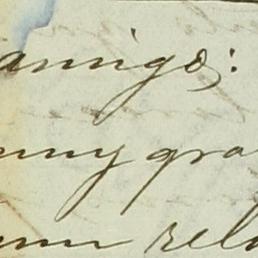 amigo;
muy gra
un rela